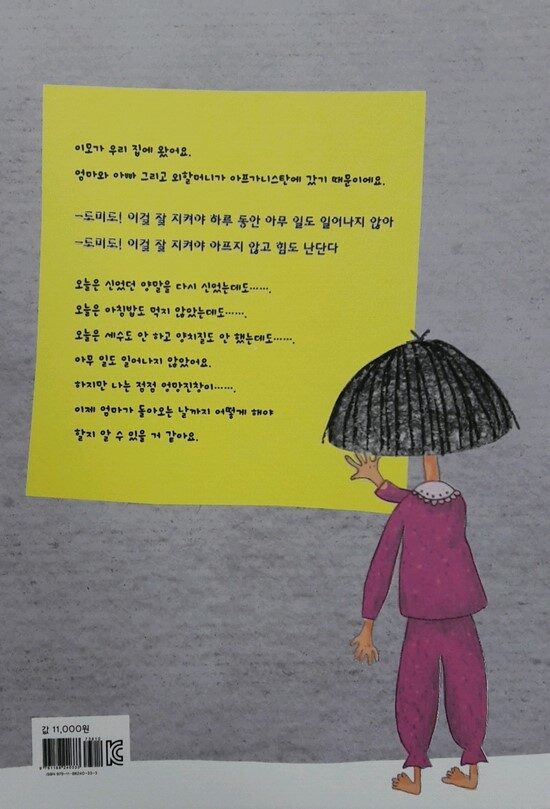 이모가 우리 집에 왔어요.
엄마와 아빠 그리고 외할머니가 아프가니스탄에 갔기 때문이에요.
-토미토! 이걸 잘 지켜야 하루 동안 아무 일도 일어나지 않아
-토미토! 이걸 잘 지켜야 아프지 않고 힘도 난단다
오늘은 신었던 양말을 다시 신었는데도…….
오늘은 아침밥도 먹지 않았는데도…….
오늘은 세수도 안 하고 양치질도 안 했는데도…….
아무 일도 일어나지 않았어요.
하지만 나는 점점 엉망진창이…….
이제 엄마가 돌아오는 날까지 어떻게 해야
할지 알 수 있을 거 같아요.
값 11,000원